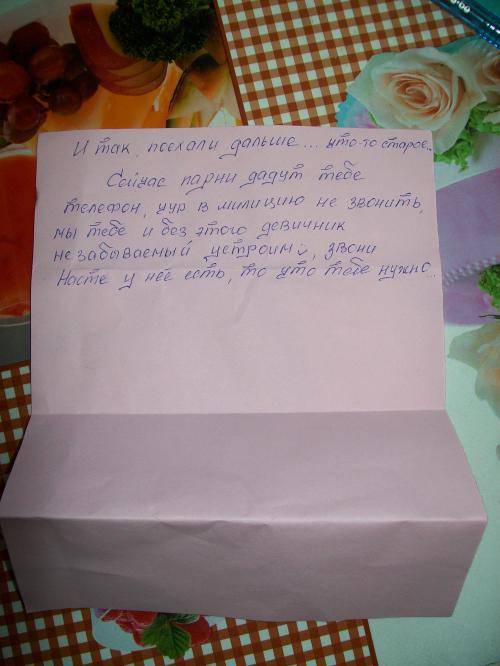 И так, поехали дальше... что-то старое..
Сейчас парни дадут тебе
телефон, чур в милицию не звонить,
мы тебе и без этого девичник
незабываемый устроим, звони
Насте у неё есть, то что тебе нужно...